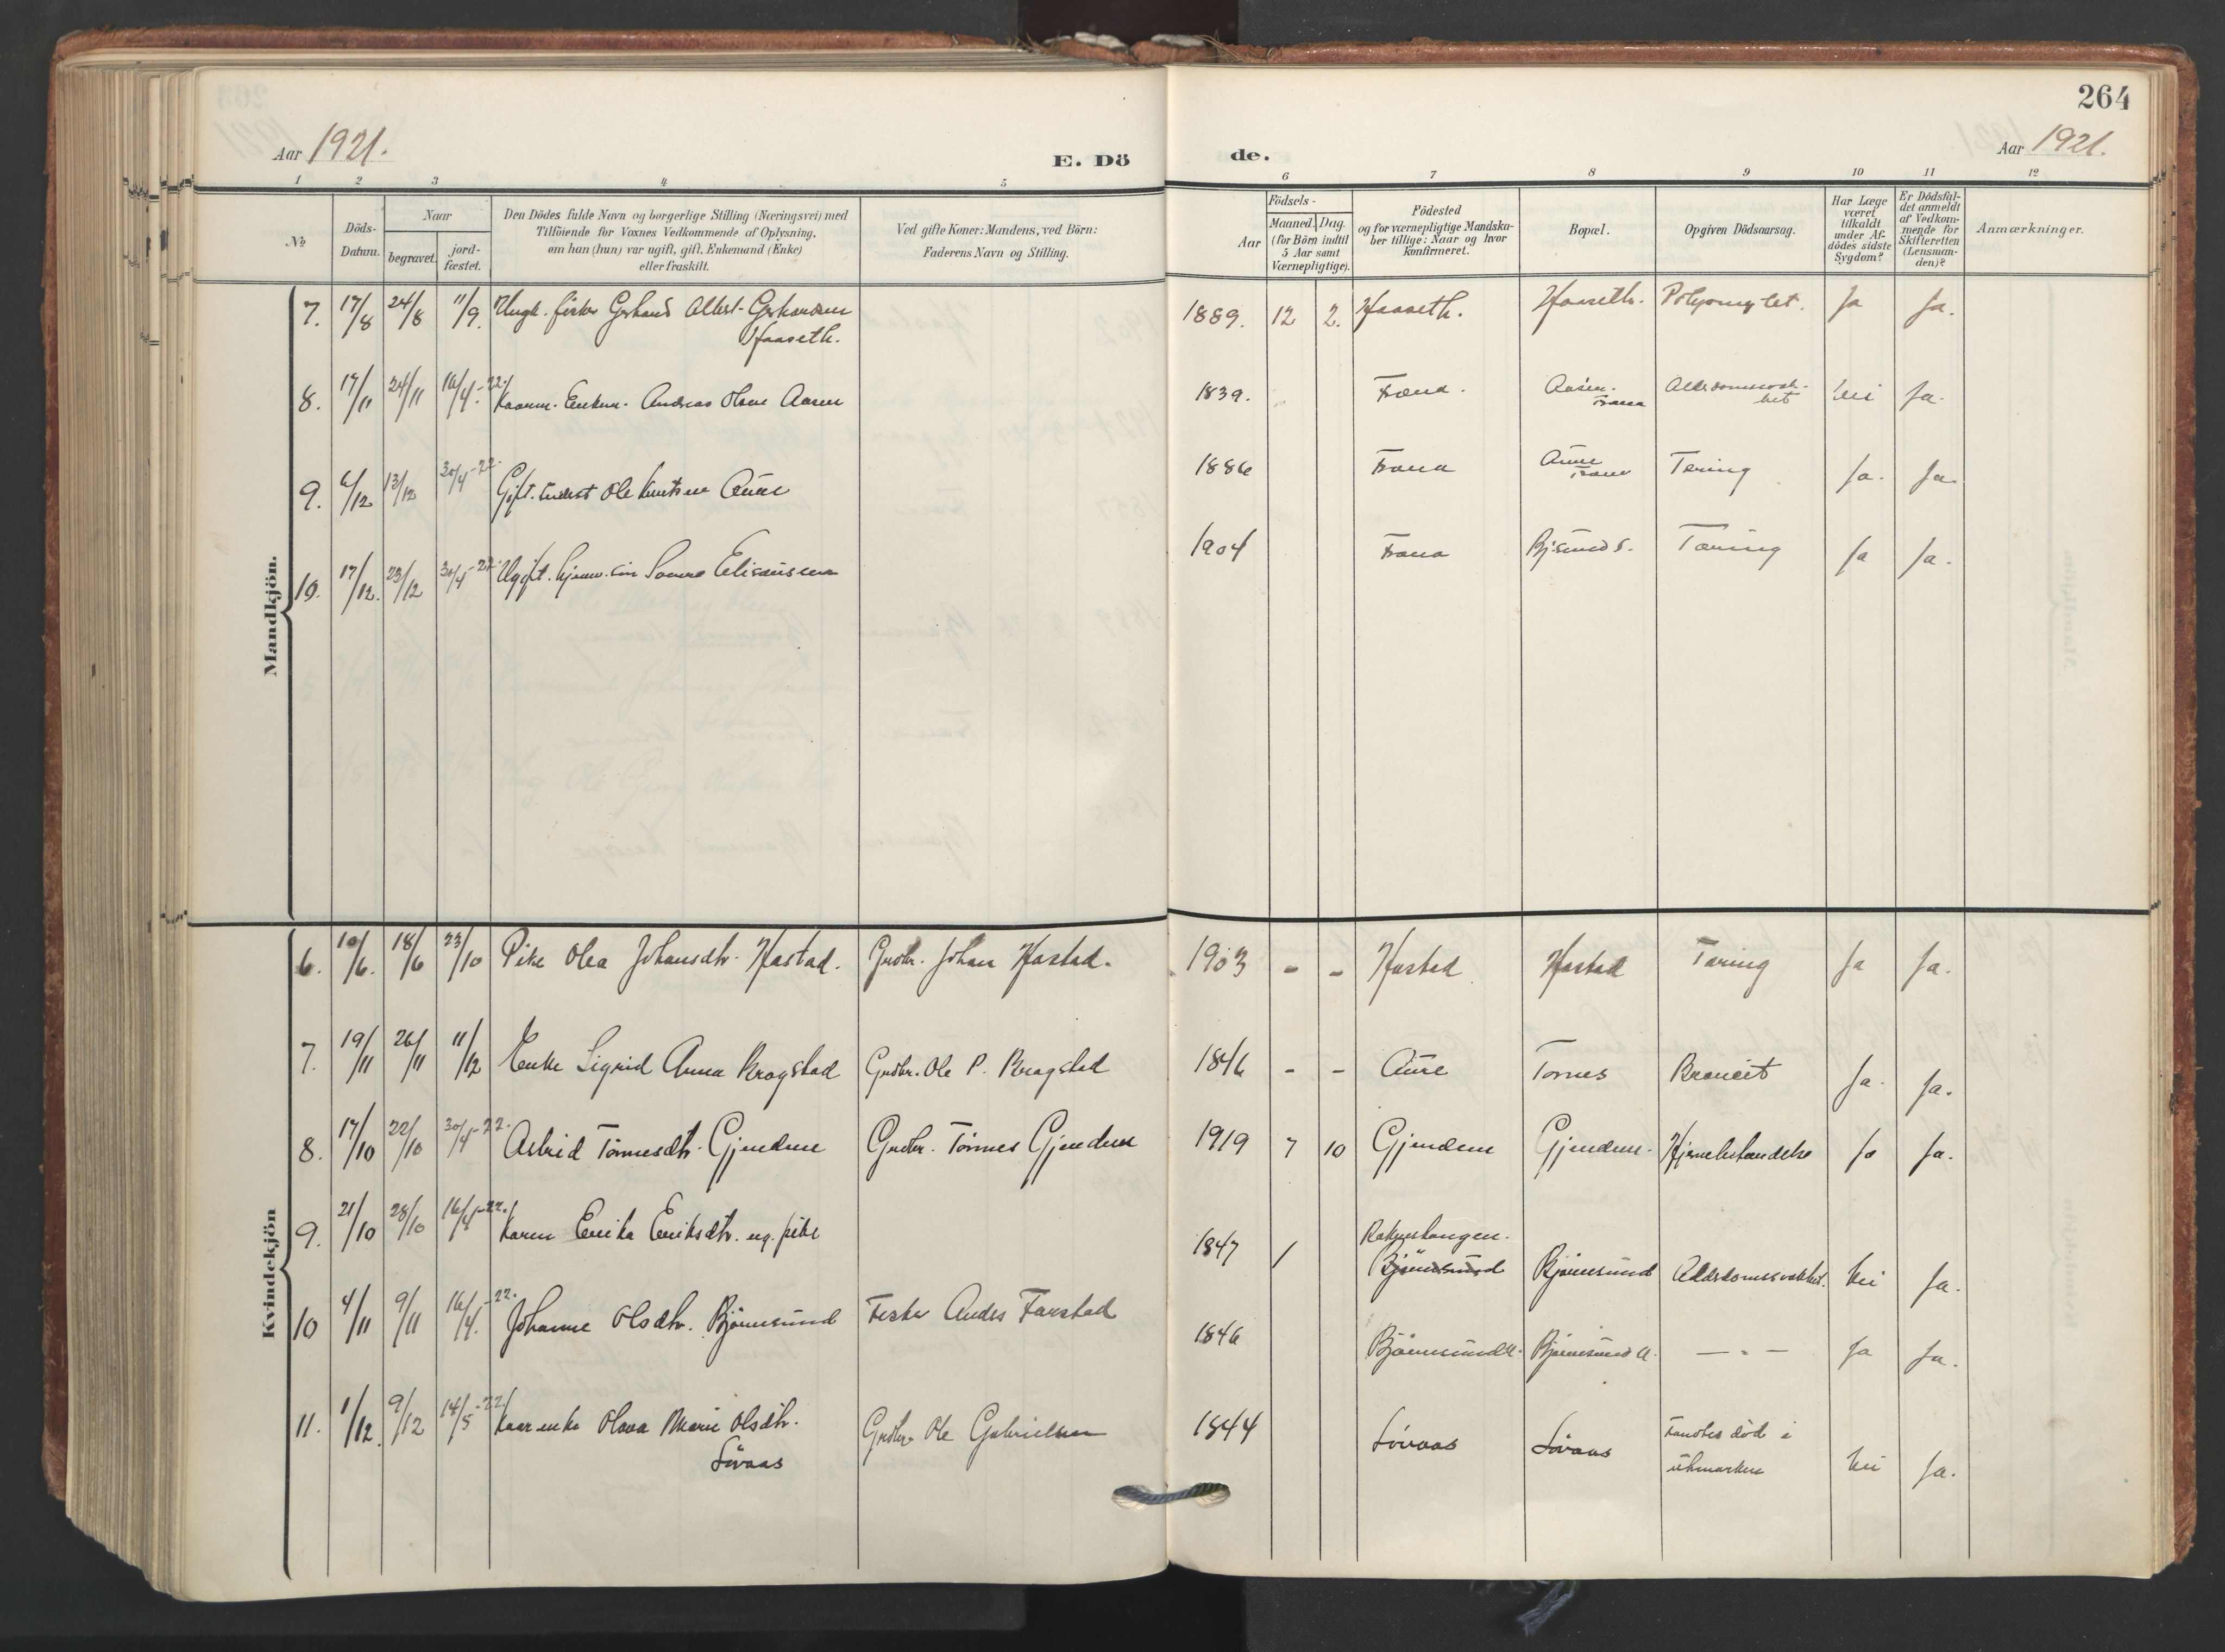 264
Aar 1921.
E. Dö de.
Aar 1921.
1 2 3 4 5 6 7 8 9 10 11 12
№
Döds-
Datum.
Naar
begravet.
jord-
fæstet.
Den Dödes fulde Navn og borgerlige Stilling (Næringsvei) med
Tilföiende for Voxnes Vedkommende af Oplysning,
om han (hun) var ugift, gift, Enkemand (Enke)
eller fraskilt.
Ved gifte Koner: Mandens, ved Börn:
Faderens Navn og Stilling.
Födsels-
Aar
Maaned. Dag.
(for Börn indtil
5 Aar samt
Værnepligtige).
Födested
og for værnepligtige Mandska-
ber tillige: Naar og hvor
Konfirmeret.
Bopæl.
Opgiven Dödsaarsag.
Har Læge
været
tilkaldt
under Af-
dödes sidste
Sygdom?
Er Dödsfal-
det anmeldt
af Vedkom-
mende for
Skifteretten
(Lensman-
den)?
Anmærkninger.
Mandkjön.
7. 17/8 24/8 11/9. Ungk. fisker Gerhard Albert Gerhardsen 1889. 12 2. Haaseth. Haaseth. Ja Ja.
Haaseth.
8. 17/11 24/11 16/4-22. Kaarm. Enkem. Andreas Olsen Aasen 1839. Fræna. Aasen. Alderdomssvak- Nei Ja.
Fræna het
9. 6/12 13/12 30/4-22. Gift. Ole Knutsen Aune 1886 Fræna Aune Tæring Ja. Ja.
Fræna
10. 17/12. 23/12 30/4-22. Ugift. hjemv. søn Elisæussen 1904 Fræna Bjs. Tæring Ja Ja.
Kvindekjön
6. 10/6. 18/6 23/10 Pike Olea Johansdtr. Hastad. Grdbr. Johan Hastad. 1903 - - Hastad Hastad Tæring Ja Ja.
7. 19/11 26/11 11/12 Enke Sigrid Anna Krogstad Grdbr. Ole P. Krogstad 1846 - - Aure Tornes Bronkit Ja. Ja.
8. 17/10 22/10 30/4-22. Astrid Tönnesdtr. Gjendem Grdbr. Tönnes Gjendem 1919 7 10 Gjendem Gjendem. Hjernebetændelse Ja Ja.
9. 21/10 28/10 16/4-22. Karen Erika Eriksdtr. ug. pike 1847 /
Bjørnsund Bjørnsund Alderdomssvakhet. Nei Ja.
10 4/11 9/11 16/4.-22. Johanne Olsdtr. Bjørnsund Fisker Anders Farstad 1846 Bjørnsund Bjørnsund — " — Ja Ja.
11. 1/12. 9/12 14/5-22 Kaarenke Olava Marie Olsdtr. Grdbr Ole Gabrielsen 1844 Lövaas Lövaas Fandtes död i
Lövaas utmarken Nei Ja.